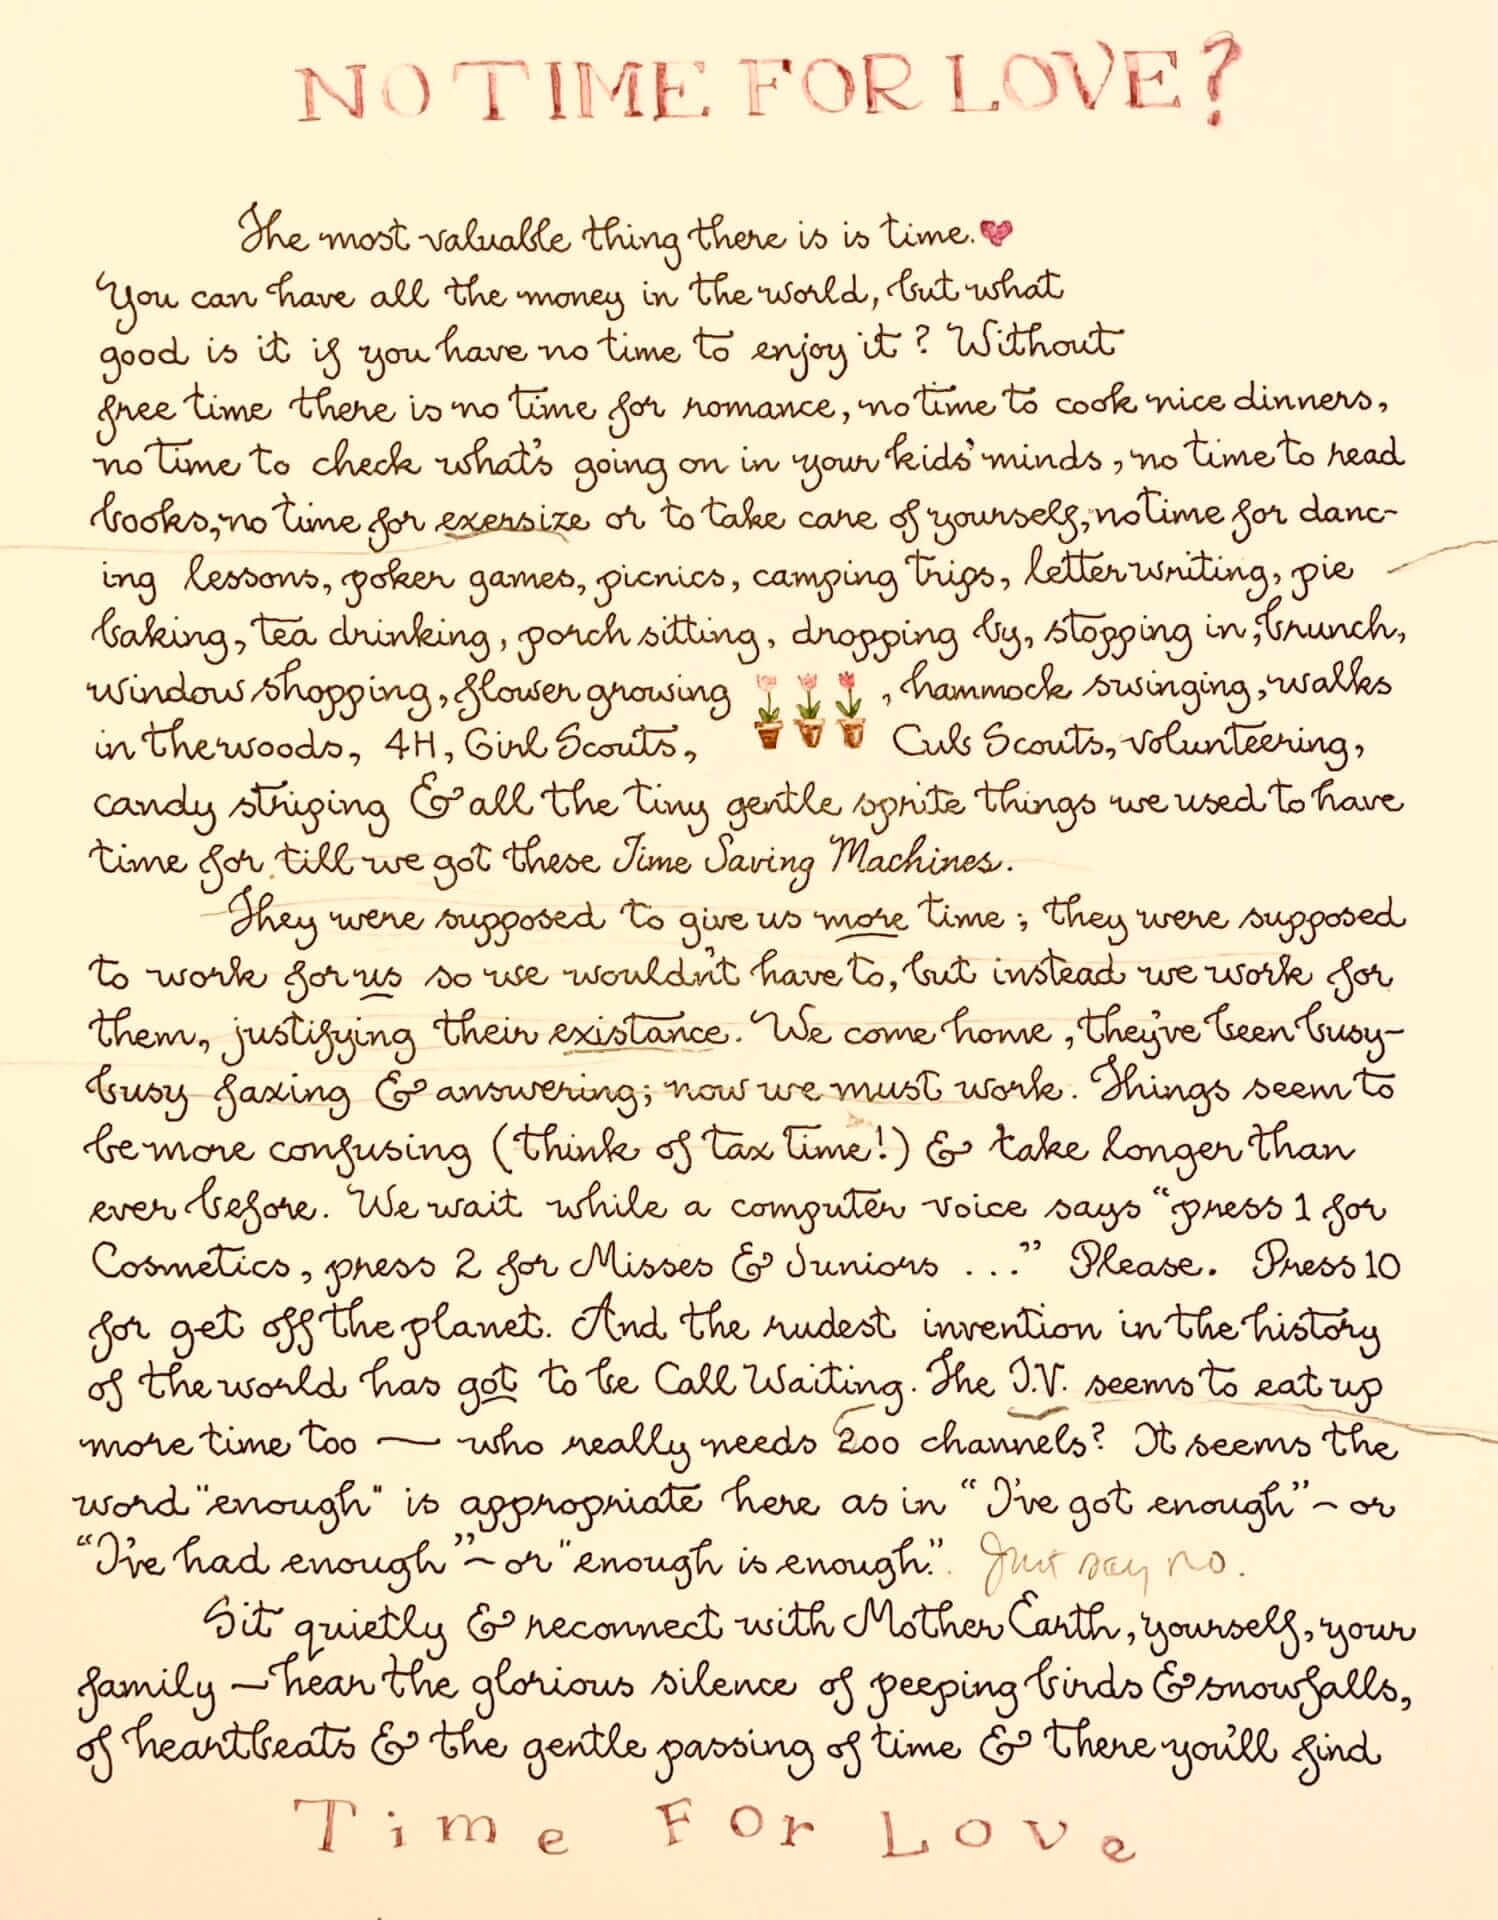 NO TIME FOR LOVE?
The most valuable thing there is is time.
You can have all the money in the world, but what
good is it if you have no time to enjoy it? Without
free time there is no time for romance, no time to cook nice dinners,
no time to check what's going on in your kids' minds, no time to read
books, no time for exersize or to take care of yourself, no time for danc-
ing lessons, poker games, picnics, camping trips, letter writing, pie
baking, tea drinking, porch sitting, dropping by, stopping in, brunch,
window shopping, flower growing, hammock swinging, walks
in the woods, 4H, Girl Scouts, Cub Scouts, volunteering,
candy striping & all the tiny gentle sprite things we used to have
time for till we got these Time Saving Machines.
They were supposed to give us more time; they were supposed
to work for us so we wouldn't have to, but instead we work for
them, justifying their existance. We come home, they've been busy-
busy faxing & answering; now we must work. Things seem to
be more confusing (think of tax time!) & take longer than
ever before. We wait while a computer voice says "press 1 for
Cosmetics, press 2 for Misses & Juniors ..." Please. Press 10
for get off the planet. And the rudest invention in the history
of the world has got to be Call Waiting. The T.V. seems to eat up
more time too — who really needs 200 channels? It seems the
word "enough" is appropriate here as in "I've got enough" ~ or
"I've had enough" ~ or "enough is enough". Just say no.
Sit quietly & reconnect with Mother Earth, yourself, your
family — hear the glorious silence of peeping birds & snowfalls,
of heartbeats & the gentle passing of time & there you'll find
Time For Love